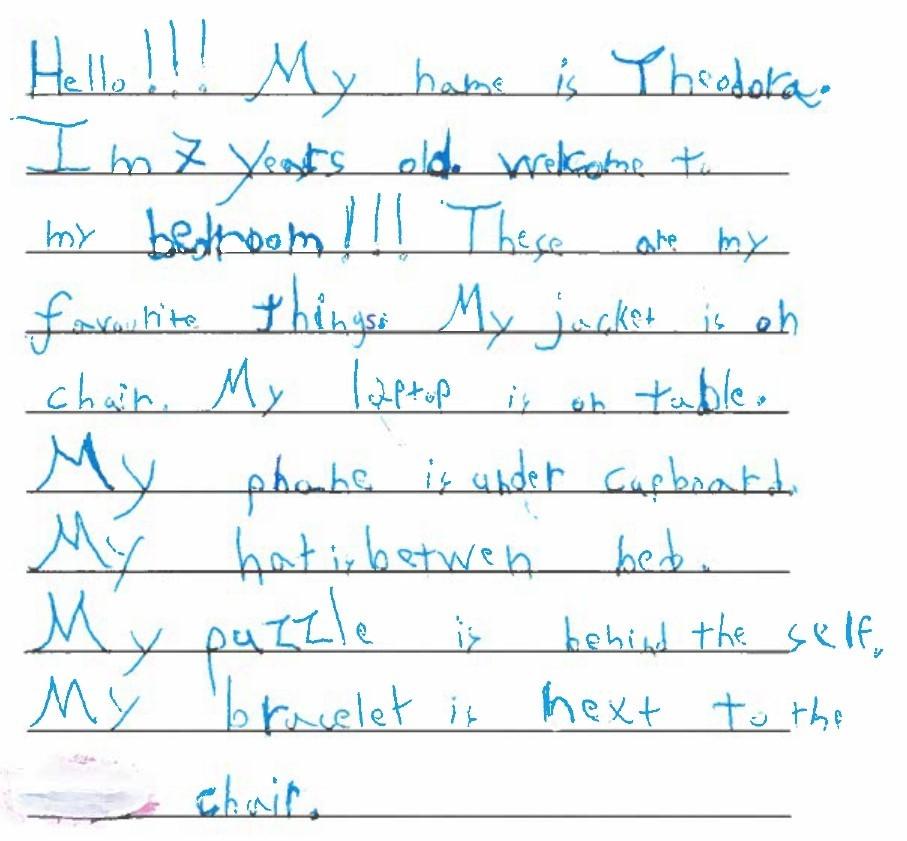 Hello!!! My name is Theodora.
Im 7 years old. welcome to
my bedroom!!! These are my
favourite things: My jacket is on
chair. My laptop is on table.
My phone is under cupboard.
My hat is betwen bed.
My puzzle is behind the self.
My bracelet is next to the
chair.